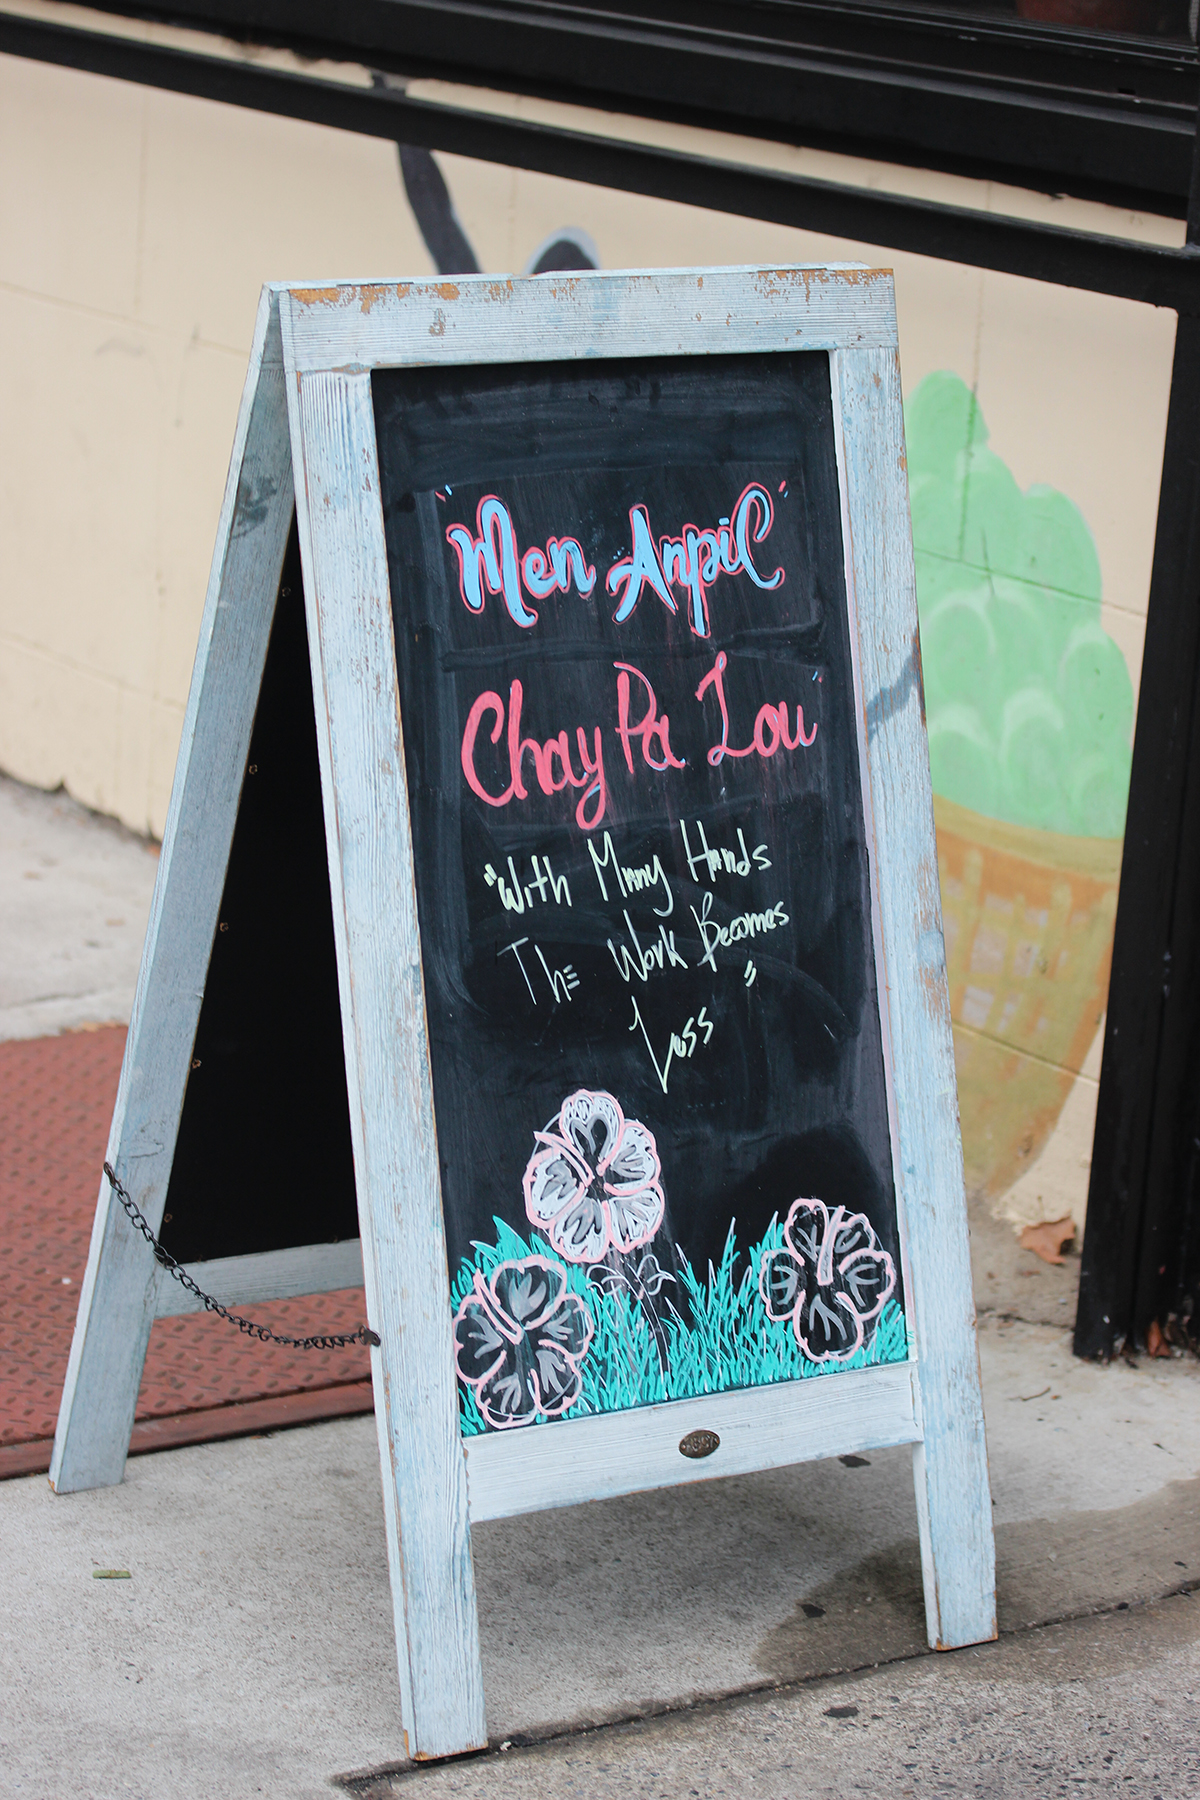 "Men Anpil"
Chay Pa Lou"
"With Many Hands
The Work Becomes
Less"